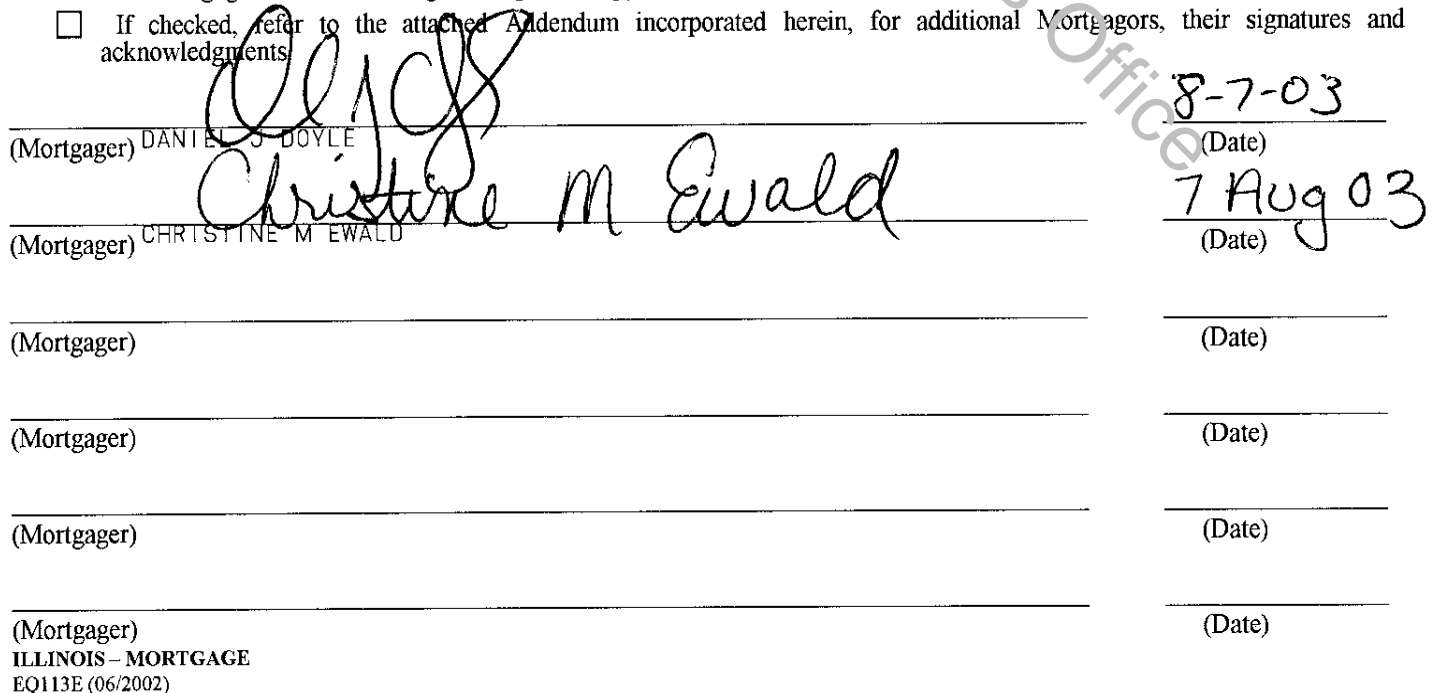 ☐ If checked, refer to the attached Addendum incorporated herein, for additional Mortgagors, their signatures and
acknowledgments
8-7-03
(Mortgager) DANIEL J DOYLE (Date)
Christine M Ewald 7 Aug 03
(Mortgager) CHRISTINE M EWALD (Date)
(Mortgager) (Date)
(Mortgager) (Date)
(Mortgager) (Date)
(Mortgager) (Date)
ILLINOIS – MORTGAGE
EQ113E (06/2002)
Office